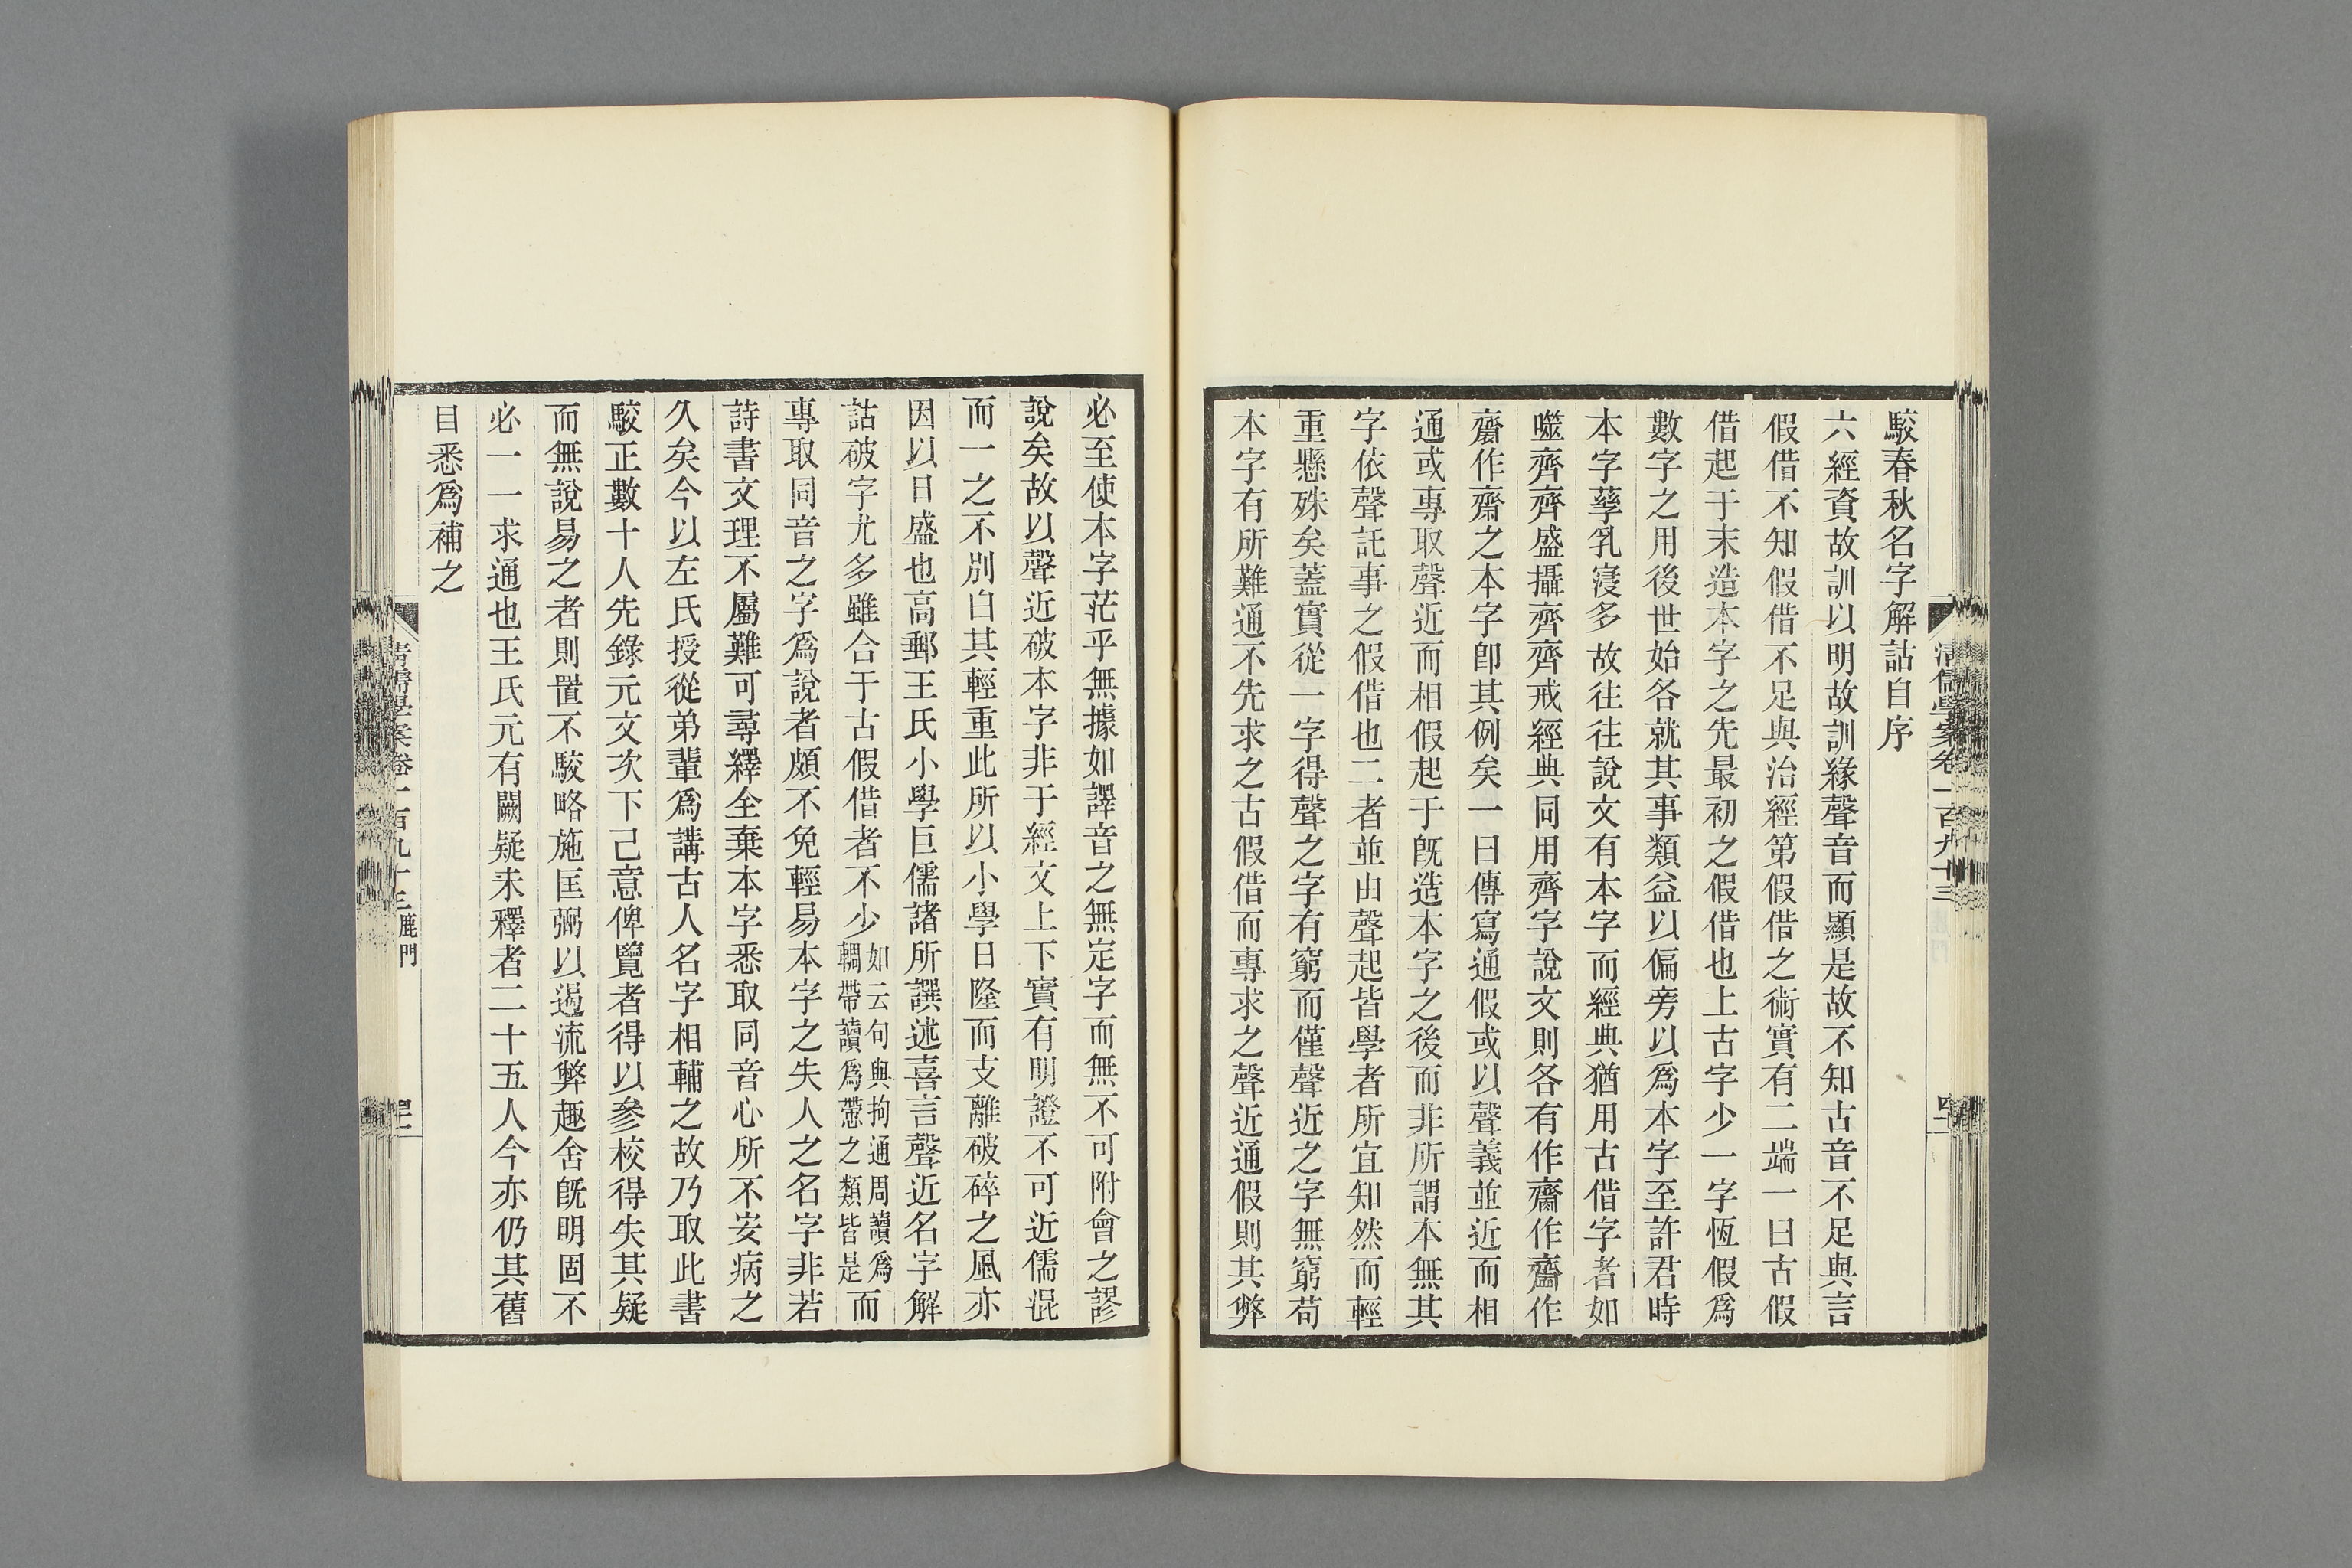 駮春秋名字解詁自序
六經資故訓以明故訓緣聲音而顯是故不知古音不足與言
假借不知假借不足與治經第假借之術實有二端一曰古假
借起于末造本字之先最初之假借也上古字少一字恆假爲
數字之用後世始各就其事類益以偏旁以爲本字至許君時
本字孳乳寖多故往往說文有本字而經典猶用古借字者如
噬齊齊盛攝齊齊戒經典同用齊字說文則各有作齌作齍作
齎作齋之本字卽其例矣一曰傳寫通假或以聲義並近而相
通或專取聲近而相假起于旣造本字之後而非所謂本無其
字依聲託事之假借也二者並由聲起皆學者所宜知然而輕
重懸殊矣蓋實從一字得聲之字有窮而僅聲近之字無窮苟
本字有所難通不先求之古假借而專求之聲近通假則其弊
必至使本字茫乎無據如譯音之無定字而無不可附會之謬
說矣故以聲近破本字非于經文上下實有明證不可近儒混
而一之不別白其輕重此所以小學日隆而支離破碎之風亦
因以日盛也高郵王氏小學巨儒諸所譔述喜言聲近名字解
詁破字尤多雖合于古假借者不少如云句與拘通周讀爲輖帶讀爲㦅之類皆是而
專取同音之字爲說者頗不免輕易本字之失人之名字非若
詩書文理不屬難可尋繹全棄本字悉取同音心所不安病之
久矣今以左氏授從弟輩爲講古人名字相輔之故乃取此書
駮正數十人先錄元文次下己意俾覽者得以參校得失其疑
而無說易之者則置不駮略施匡弼以遏流弊趣舍旣明固不
必一一求通也王氏元有闕疑未釋者二十五人今亦仍其舊
目悉爲補之
清儒學案卷一百九十三
清儒學案卷一百九十三 鹿門